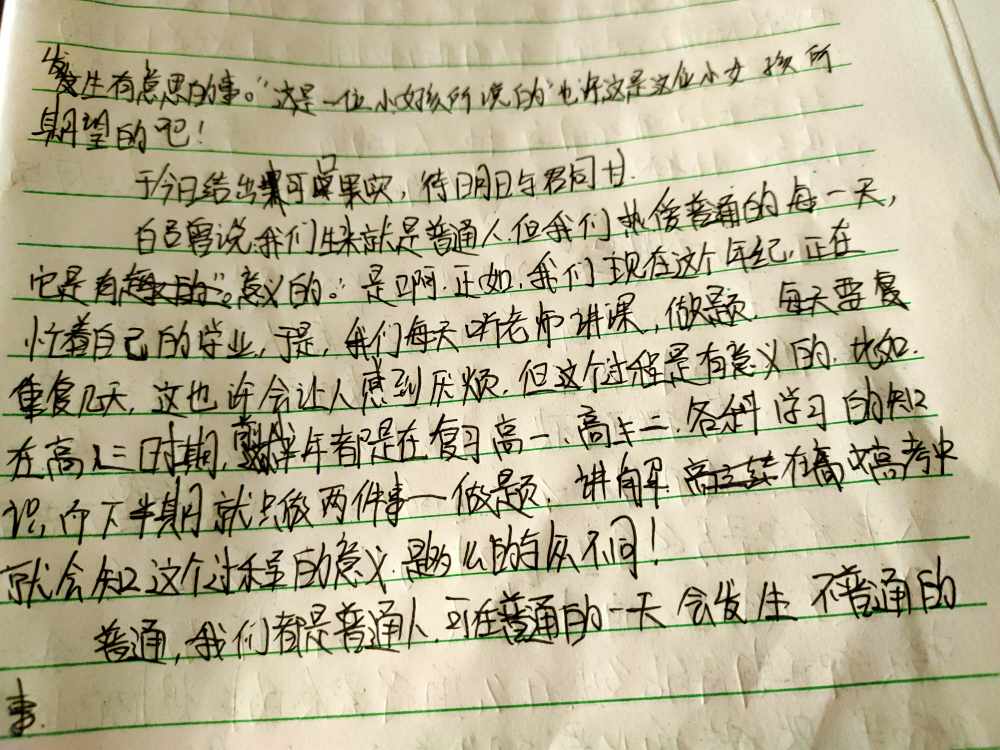 发生有意思的事。“这是一位小女孩所说的”也许这是这位小女孩所
期望的吧!
于今日结出可口果实,待明日与君同甘.
白岩曾说:我们生来就是普通人但我们热爱普通的每一天,
它是有意义的。”是啊.正如,我们现在这个年纪,正在
忙着自己的学业,于是,我们每天听老师讲课,做题.每天要复
重复几天,这也许会让人感到厌烦.但这个过程是有意义的.比如.
在高三时期,半年都是在复习高一、高二.各科学习的知
识,而下半期就只做两件事一做题.讲解.在高考中
就会知这个过程的意义.是多么的与众不同!
普通,我们都是普通人.可在普通的一天会发生不普通的
事.